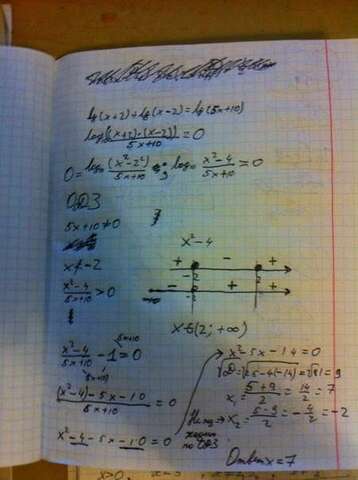 lg(x+2)+lg(x-2)=lg(5x+10)
log((x+2)·(x-2))/(5x+10)=0
0=log₁₀ (x²-2²)/(5x+10) ; log₁₀ (x²-4)/(5x+10)=0
ОДЗ
5x+10≠0
x≠-2
(x²-4)/(5x+10)>0
x²-4
+ - +
-2 2
- + +
-2
x∈(2; +∞)
(x²-4)/(5x+10) - 1 = 0
((x²-4)-5x-10)/(5x+10) = 0
x²-4-5x-10=0
x²-5x-14=0
√D=√25-4(-14)=√81=9
x₁=(5+9)/2=14/2=7
x₂=(5-9)/2=-4/2=-2
по ОДЗ
Ответ x=7